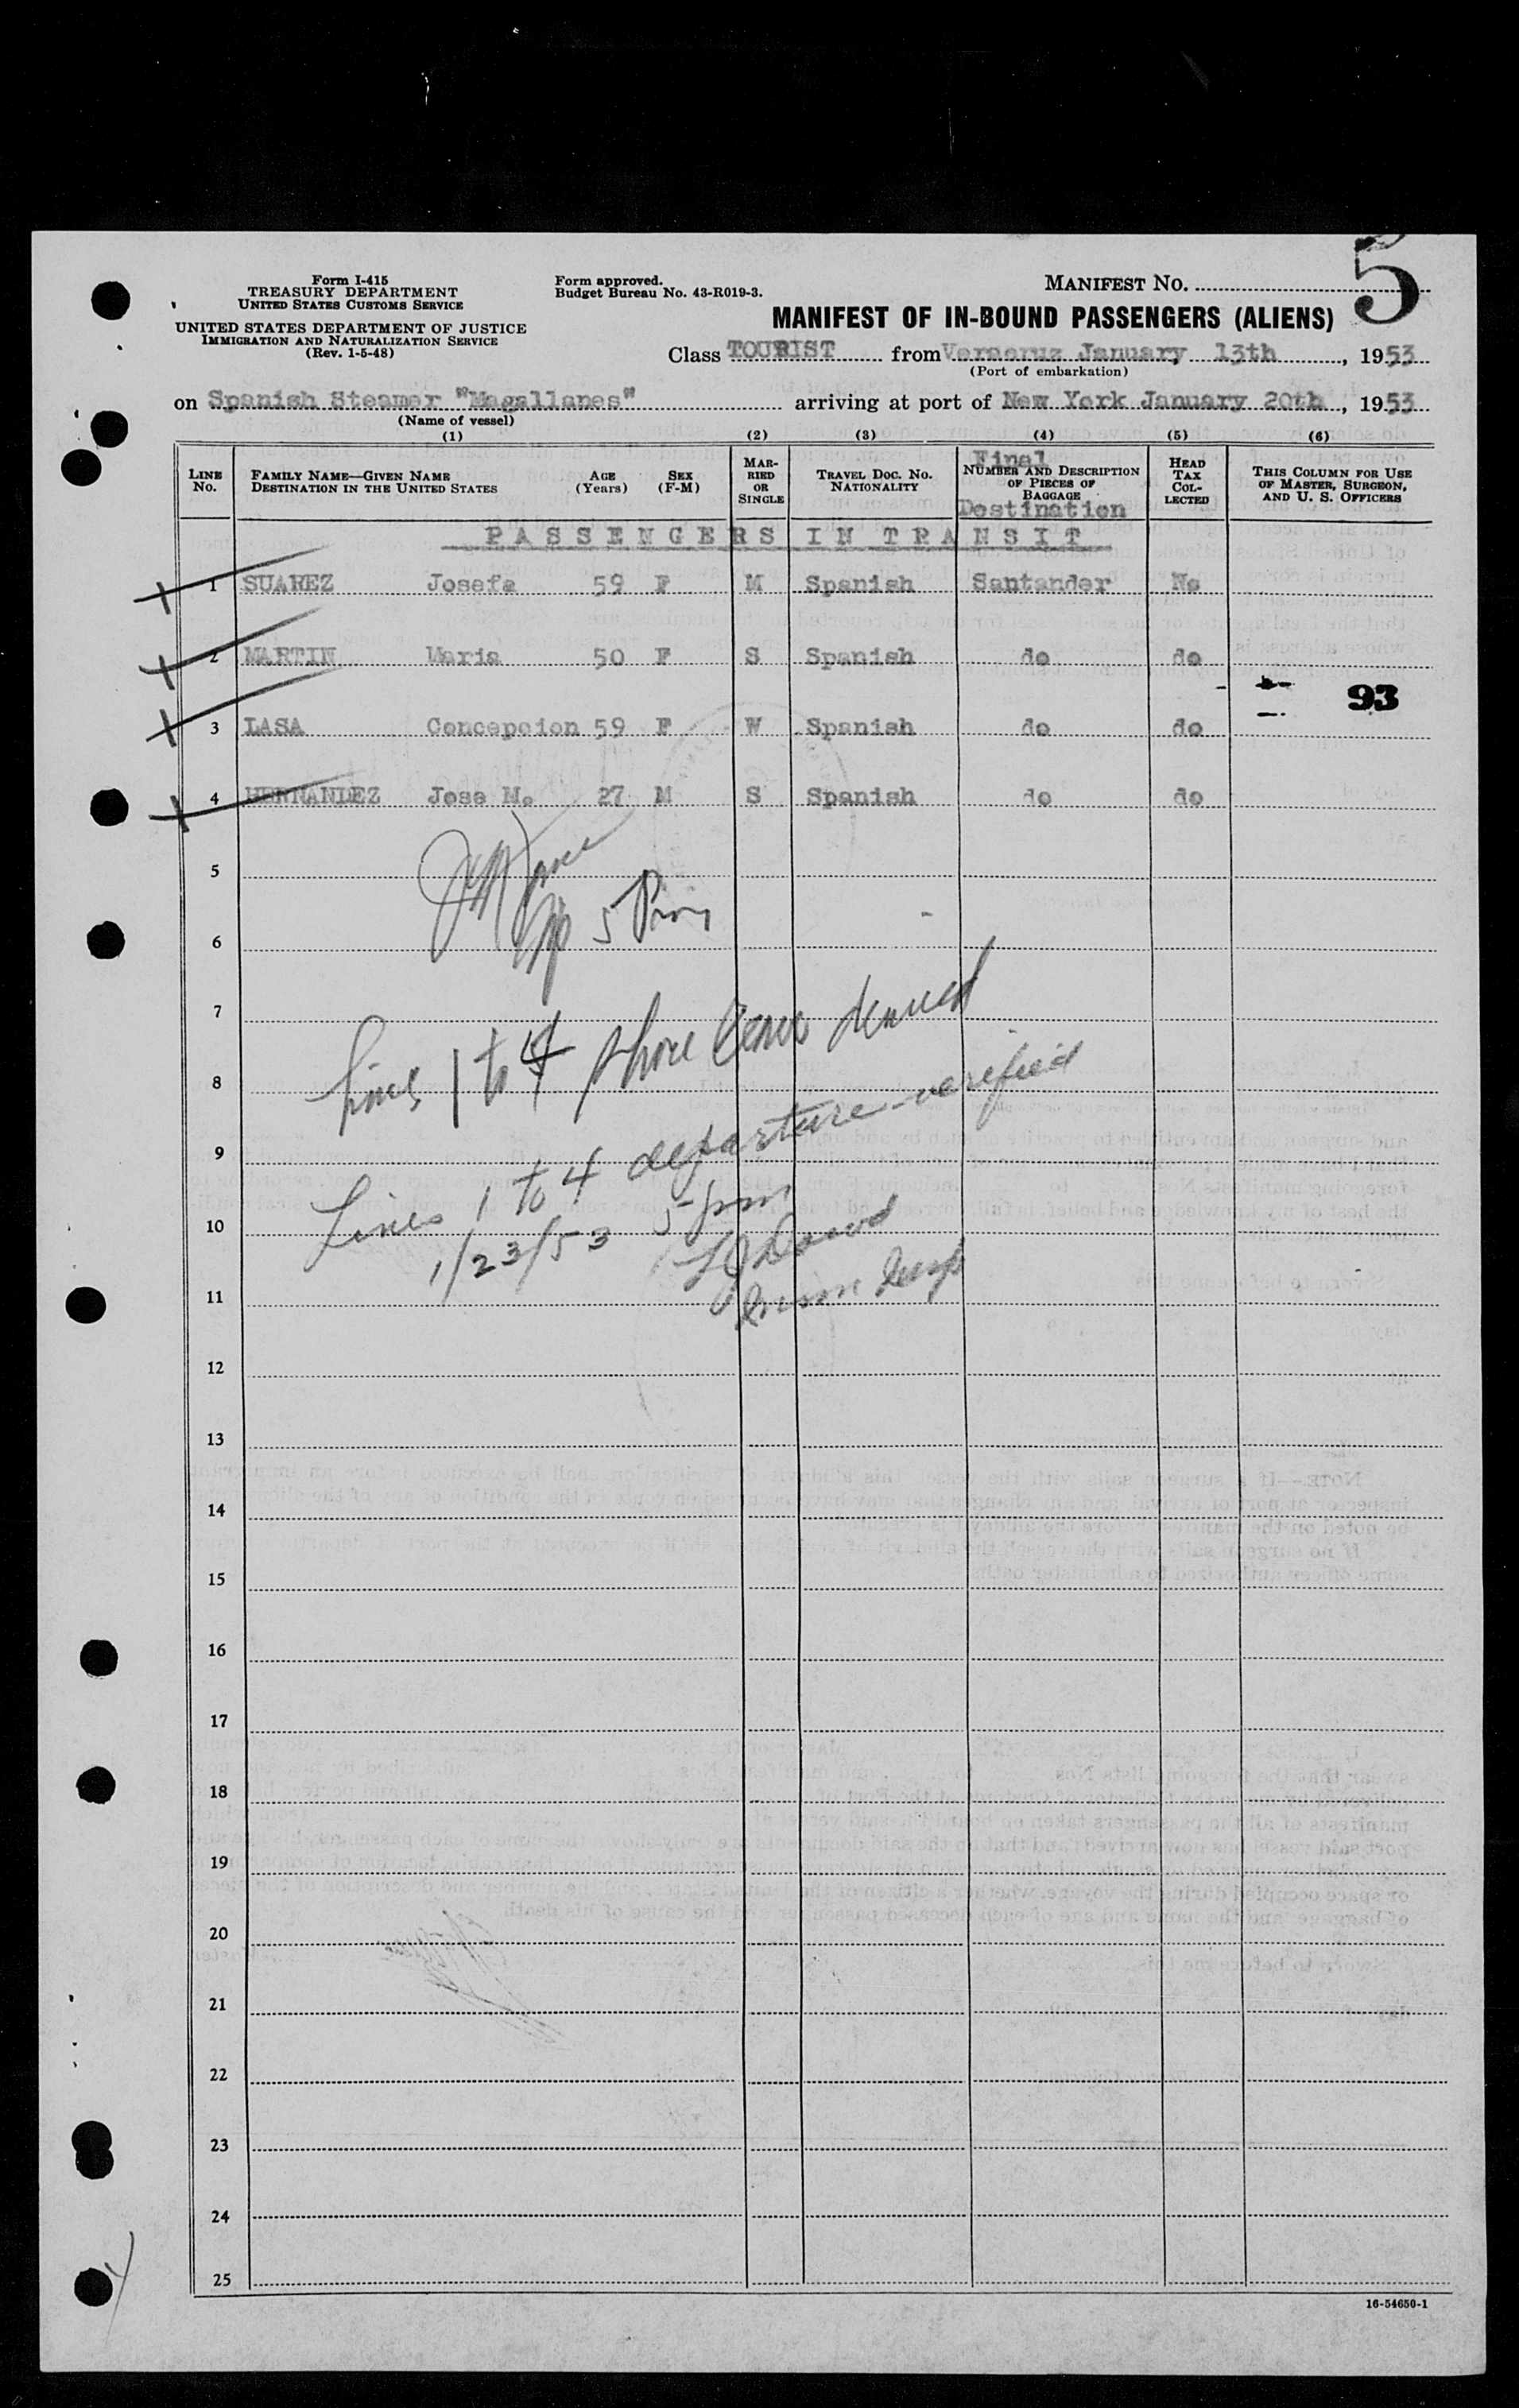 5
Form I-415
TREASURY DEPARTMENT
UNITED STATES CUSTOMS SERVICE
UNITED STATES DEPARTMENT OF JUSTICE
IMMIGRATION AND NATURALIZATION SERVICE
(Rev. 1-5-48)
Form approved.
Budget Bureau No. 43-R019-3.
MANIFEST NO.
MANIFEST OF IN-BOUND PASSENGERS (ALIENS)
Class TOURIST from Veracruz January 13th, 1953
(Port of embarkation)
on Spanish Steamer "Magallanes" arriving at port of New York January 20th, 1953
(Name of vessel)
(1) (2) (3) (4) (5) (6)
LINE No. FAMILY NAME—GIVEN NAME DESTINATION IN THE UNITED STATES AGE (Years) SEX (F-M) MARRIED OR SINGLE TRAVEL DOC. NO. NATIONALITY Final NUMBER AND DESCRIPTION OF PIECES OF BAGGAGE Destination HEAD TAX COLLECTED THIS COLUMN FOR USE OF MASTER, SURGEON, AND U. S. OFFICERS
PASSENGERS IN TRANSIT
1 SUAREZ Josefa 59 F M Spanish Santander No
2 MARTIN Maria 50 F S Spanish do do
93
3 LASA Concepcion 59 F W Spanish do do
4 HERNANDEZ Jose M. 27 M S Spanish do do
5
6
7
Lines 1 to 4 shore leave denied
8
9
Lines 1 to 4 departure verified
10
1/23/53 5 pm
11
12
13
14
15
16
17
18
19
20
21
22
23
24
25
16-54650-1